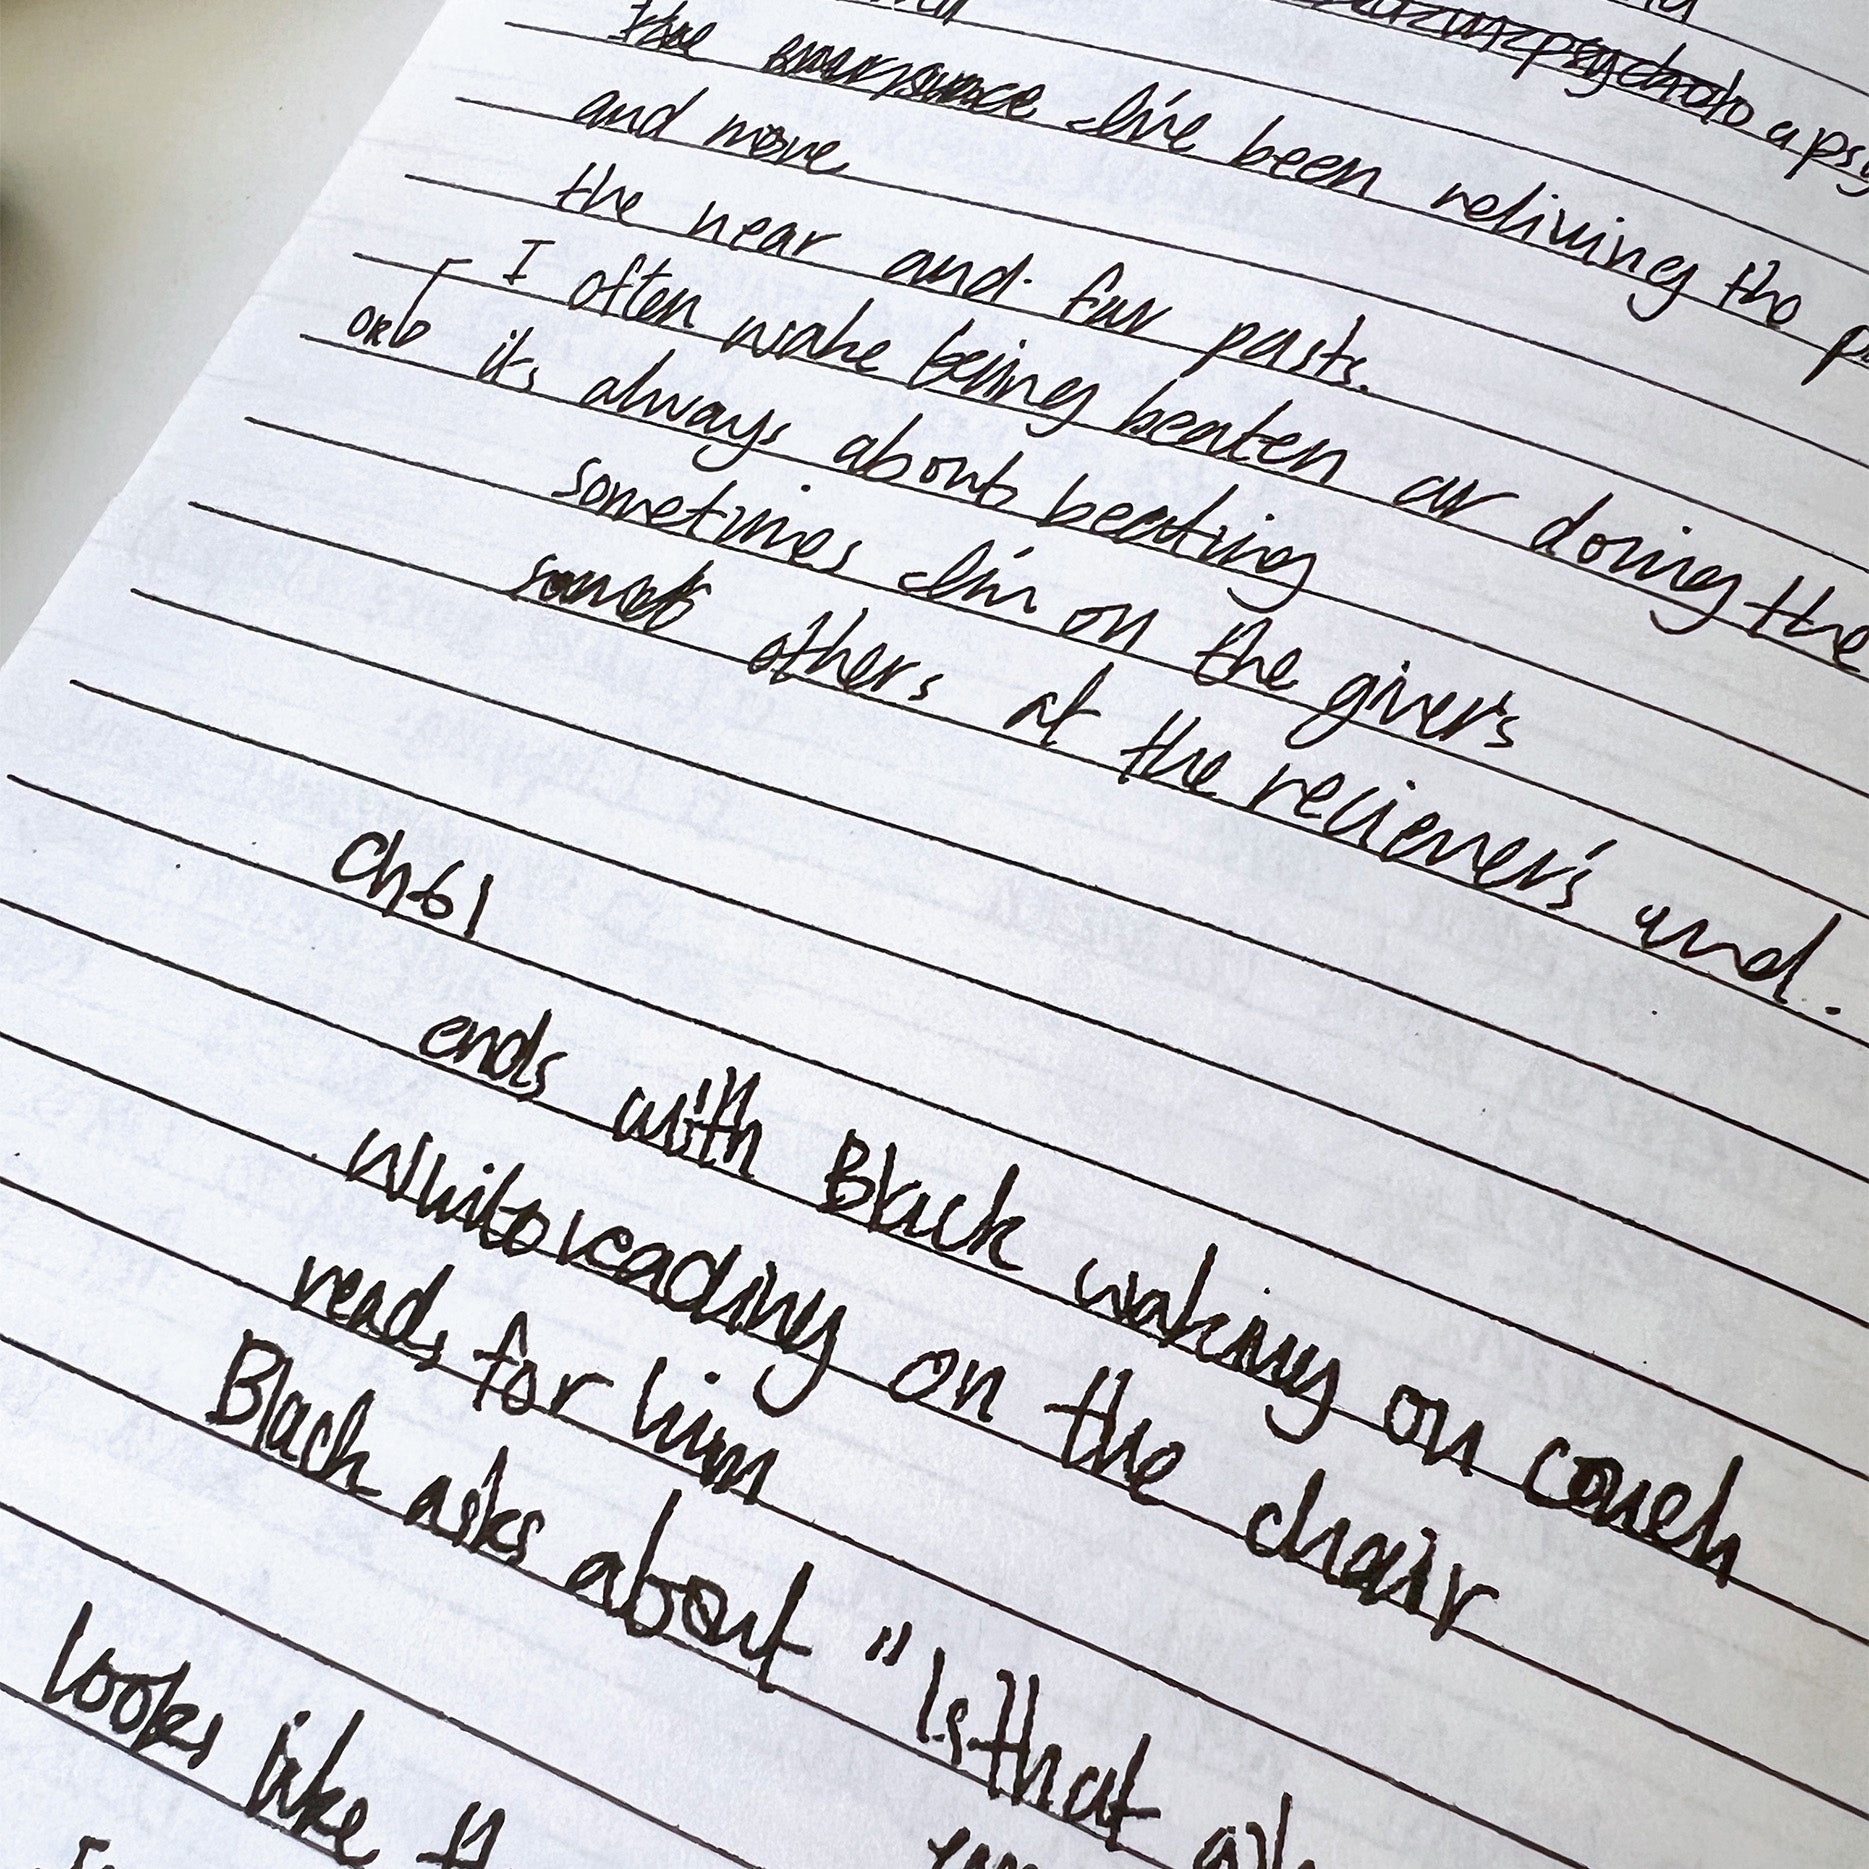 a psy
I've been reliving the
and move
the near and far pasts.
I often wake being beaten or doing the
its always about beating
sometimes I'm on the giver's
others at the reciever's end.
Ch 61
ends with Black waking on couch
White reading on the chair
reads for him
Black asks about "Is that
looks like